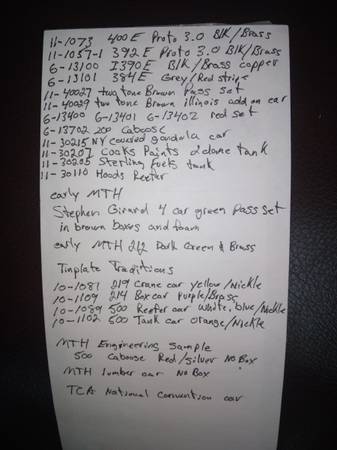 11-1073 400E Proto 3.0 Blk/Brass
11-1057-1 392E Proto 3.0 Blk/Brass
6-13100 1390E Blk/Brass copper
6-13101 384E Grey/Red stripe
11-40027 two tone Brown Pass set
11-40029 two tone Brown illinois add on car
6-13400 6-13401 6-13402 red set
6-13702 200 Caboose
11-30215 NY covered gondala car
11-30207 Cooks Paints 2 dome tank
11-30205 Sterling fuels tank
11-30110 Hoods Reefer
early MTH
Stephen Girard 4 car green Pass set
in brown boxes and foam
early MTH 212 Dark Green & Brass
Tinplate Traditions
10-1081 219 Crane car yellow/Nickle
10-1109 214 Box car Purple/Brass
10-1089 500 Reefer car white, blue/Nickle
10-1102 500 Tank car orange/Nickle
MTH Engineering Sample
500 Caboose Red/Silver No Box
MTH lumber car No Box
TCA National Convention car